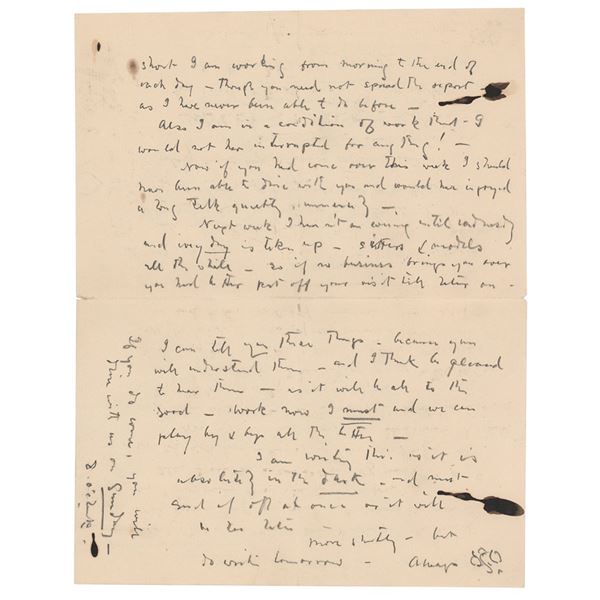 short I am working from morning to the end of
each day – though you need not spread the report
as I have never been able to do before –
Also I am in a condition of work that I
would not have interrupted for anything! –
Now if you had come over this week I should
have been able to dine with you and would have enjoyed
a long talk quietly immensely –
Next week I haven't an evening until Wednesday
and every day is taken up – sitters & models
all the while – so if no business brings you over
you had better put off your visit till later on –
I can tell you these things – because you
will understand them – and I think be pleased
to hear them – as it will be all to the
good – work now I must and we can
play by & bye all the better –
I am writing this as it is
absolutely in the dark – and must
send it off at once as it will
be too late
more shortly – but
do write tomorrow – Always
If you do come, you will
dine with us on Sunday –
8. o'clock.